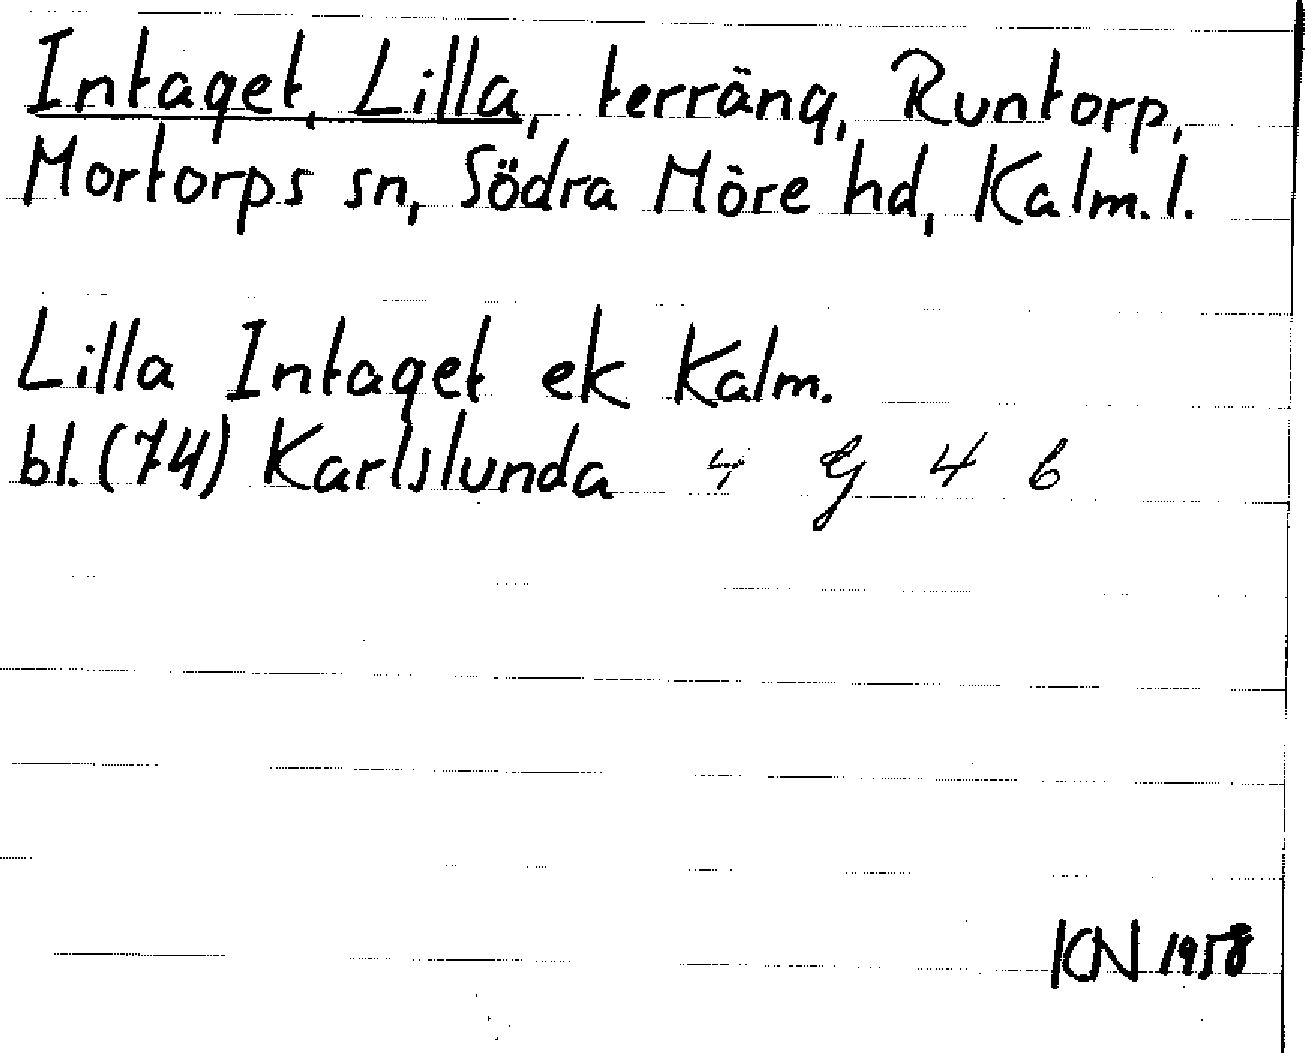 Intaget, Lilla, terräng, Runtorp,
Mortorps sn, Södra Möre hd, Kalm. l.
Lilla Intaget ek Kalm.
bl. (74) Karlslunda 4 G 4 b
KN 1958